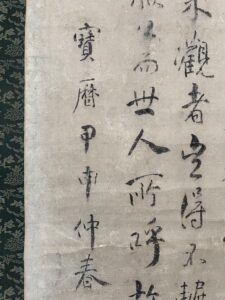 來觀者豈得不
而世人所呼
寶曆甲申仲春